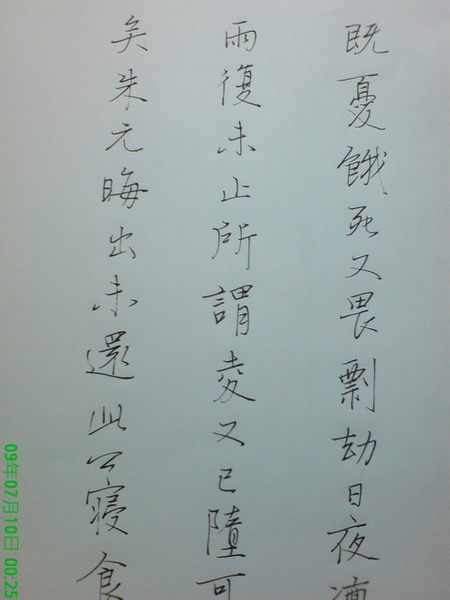 既憂餓死又畏剽劫日夜
雨復未止所謂麦又已墮可
矣朱元晦出未還此公寢食
09年07月10日 00:25